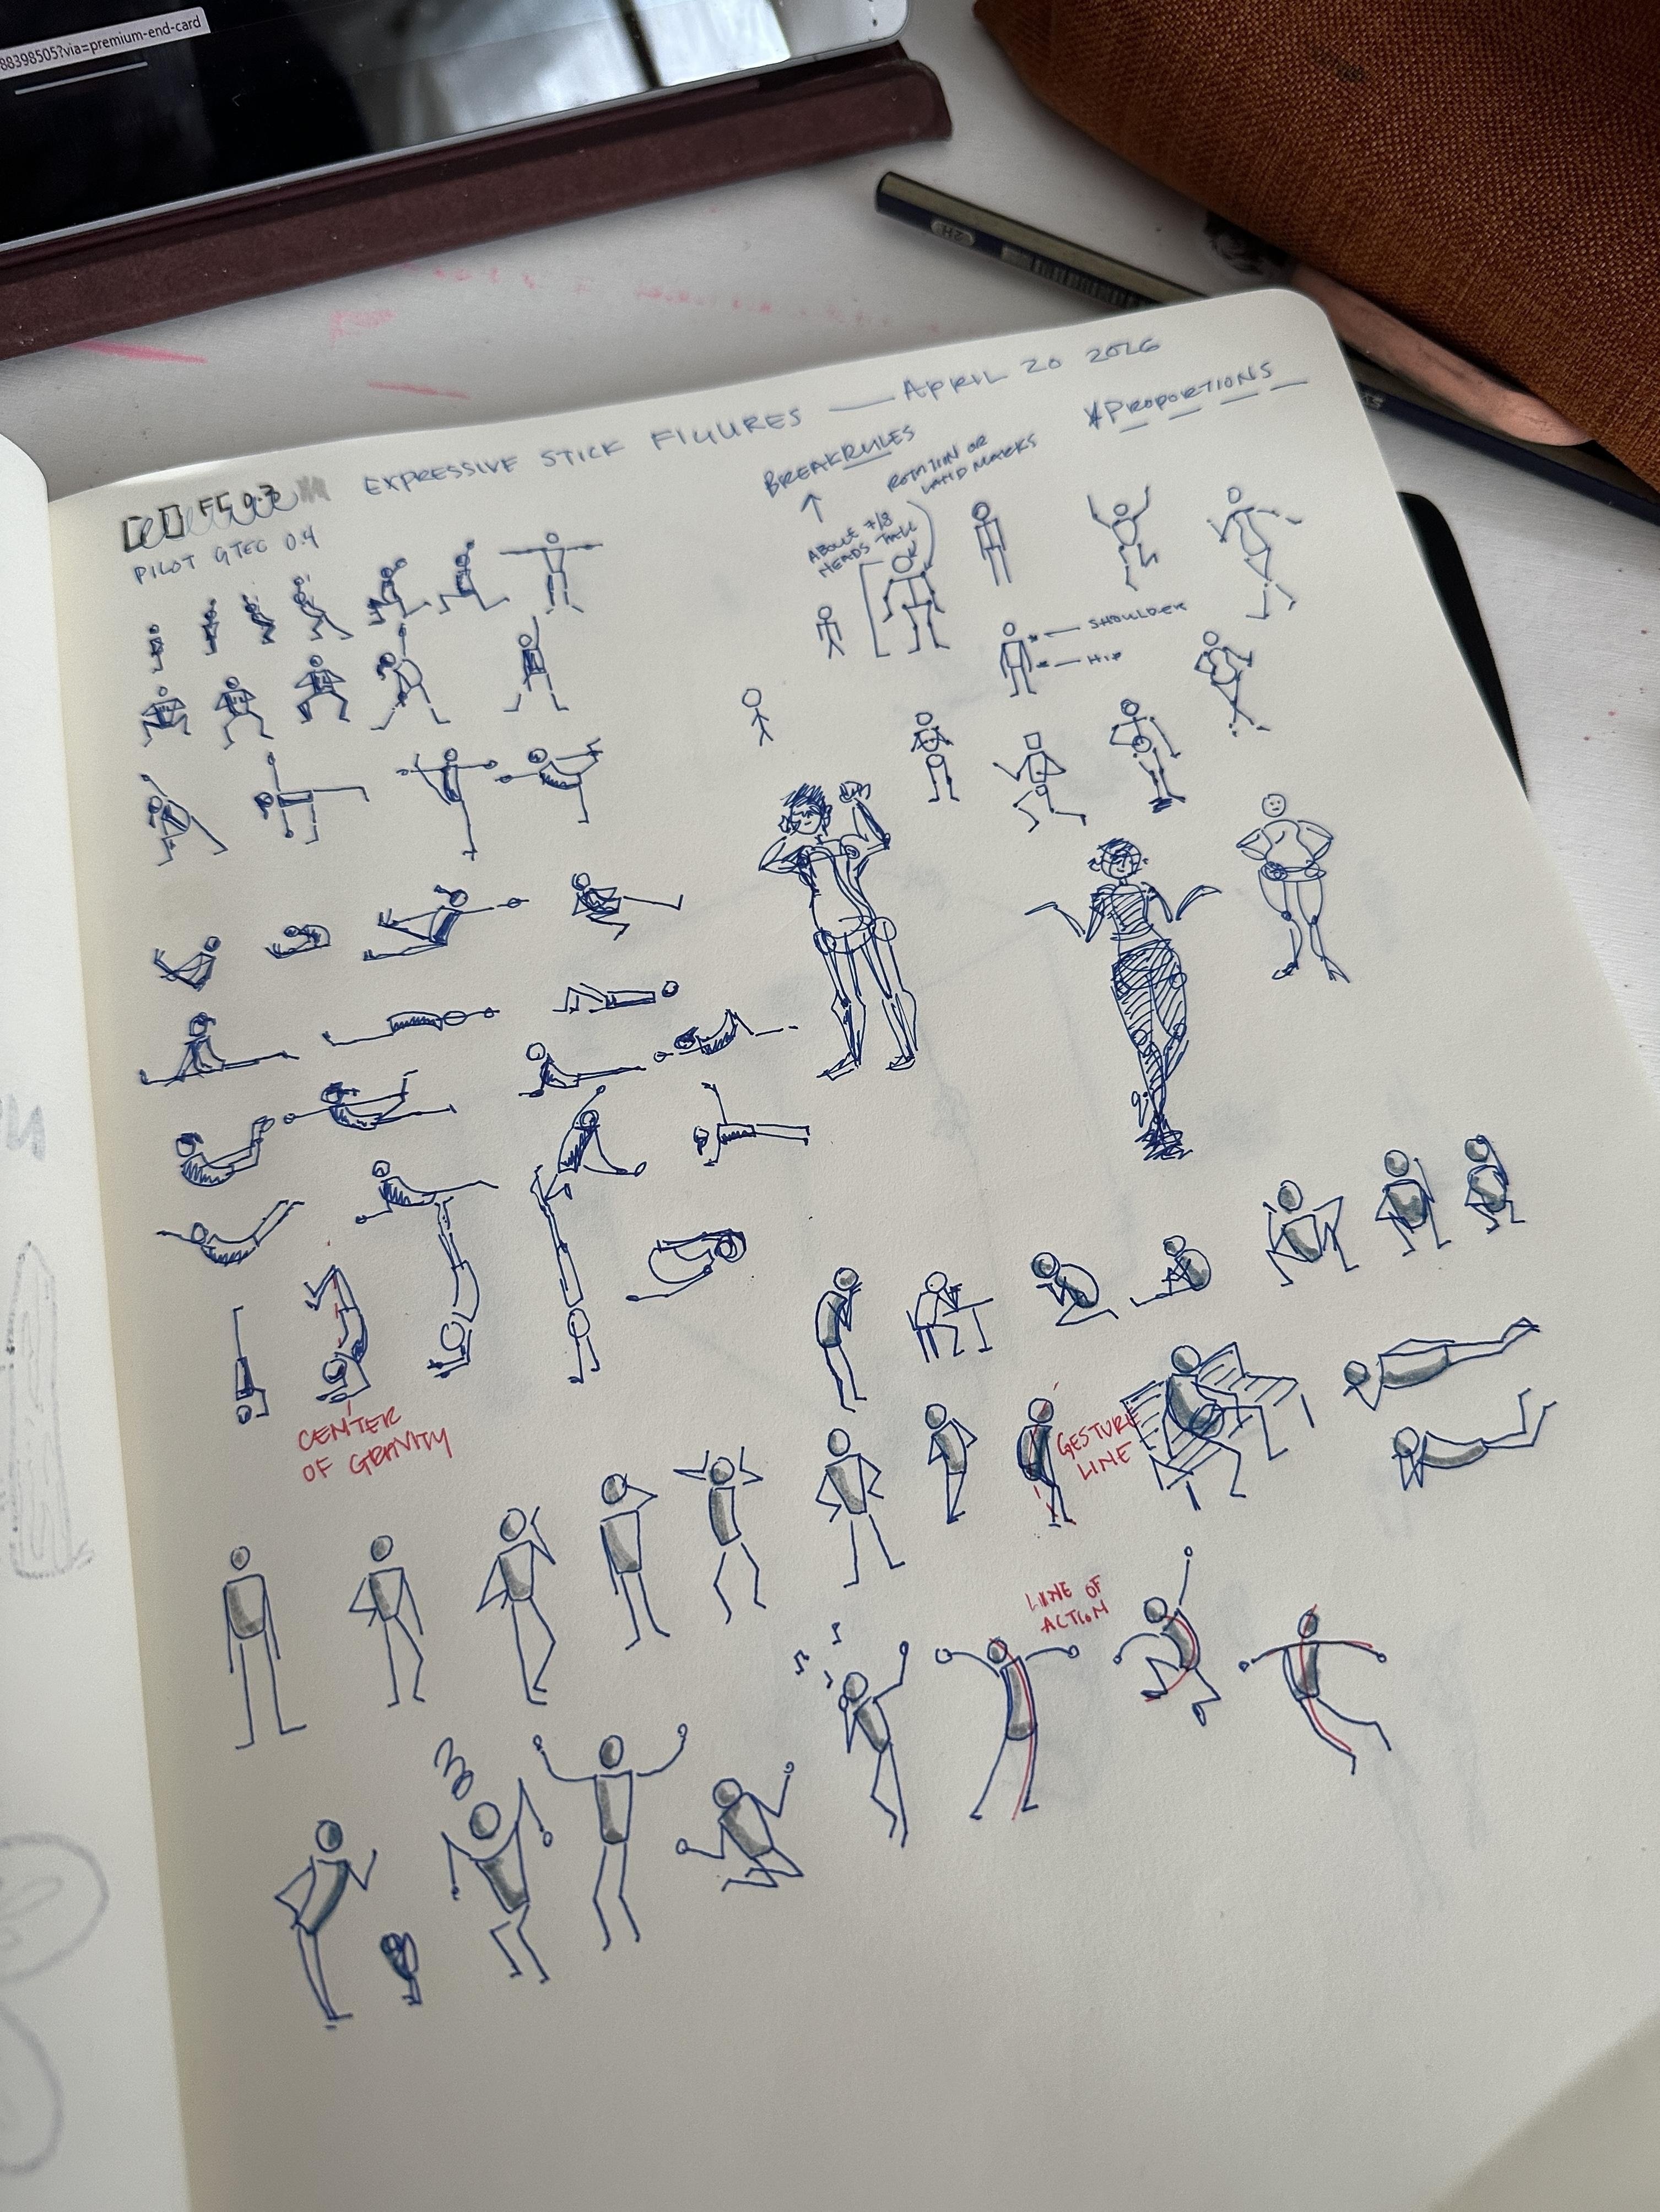 88398505?via=premium-end-card
2H
EXPRESSIVE STICK FIGURES — APRIL 20 2026
*PROPORTIONS
FC 0.3
PILOT GTEC 0.4
BREAK RULES
↑
ABOUT 7/8
HEADS TALL
ROTATION OR
LANDMARKS
SHOULDER
HIP
CENTER
OF GRAVITY
GESTURE
LINE
LINE OF
ACTION